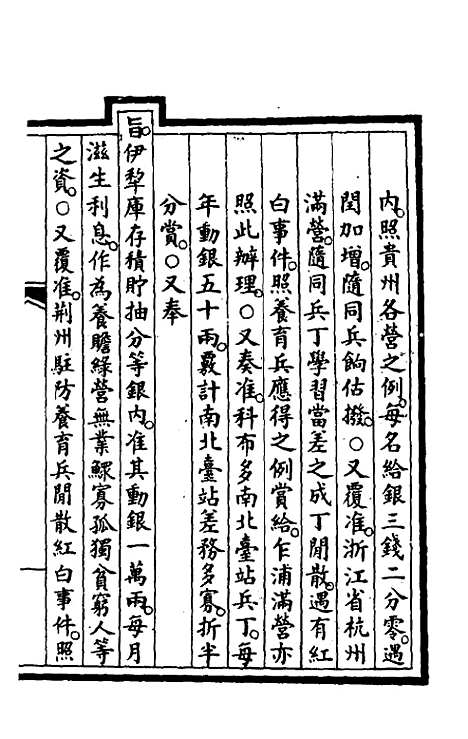 內。照貴州各營之例。每名給銀三錢二分零。遇
閏加增。隨同兵餉估撥。○又覆准。浙江省杭州
滿營。隨同兵丁學習當差之成丁閒散。遇有紅
白事件。照養育兵應得之例賞給。乍浦滿營亦
照此辦理。○又奏准。科布多南北臺站兵丁。每
年動銀五十兩。覈計南北臺站差務多寡。折半
分賞。○又奉
旨。伊犂庫存積貯抽分等銀內。准其動銀一萬兩。每月
滋生利息。作為養贍綠營無業鰥寡孤獨貧窮人等
之資。○又覆准。荆州駐防養育兵閒散紅白事件。照